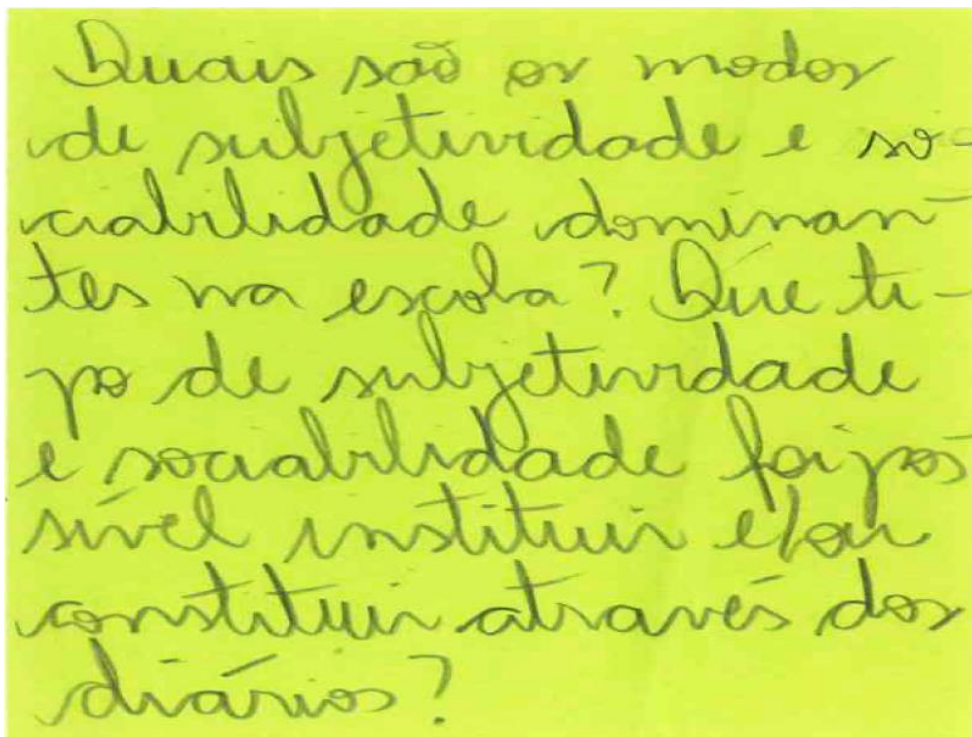 Quais são os modos
de subjetividade e so-
ciabilidade dominan-
tes na escola? Que ti-
po de subjetividade
e sociabilidade foi pos
sível instituir e/ou
constituir através dos
diários?